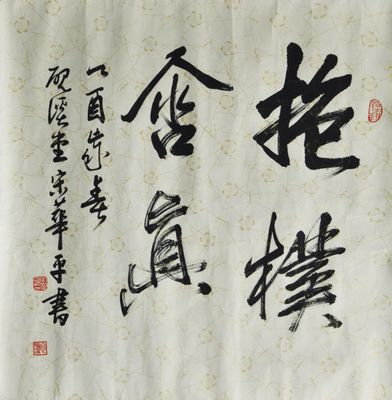 抱樸
含真
乙酉歲春
硯溪堂宋華平書